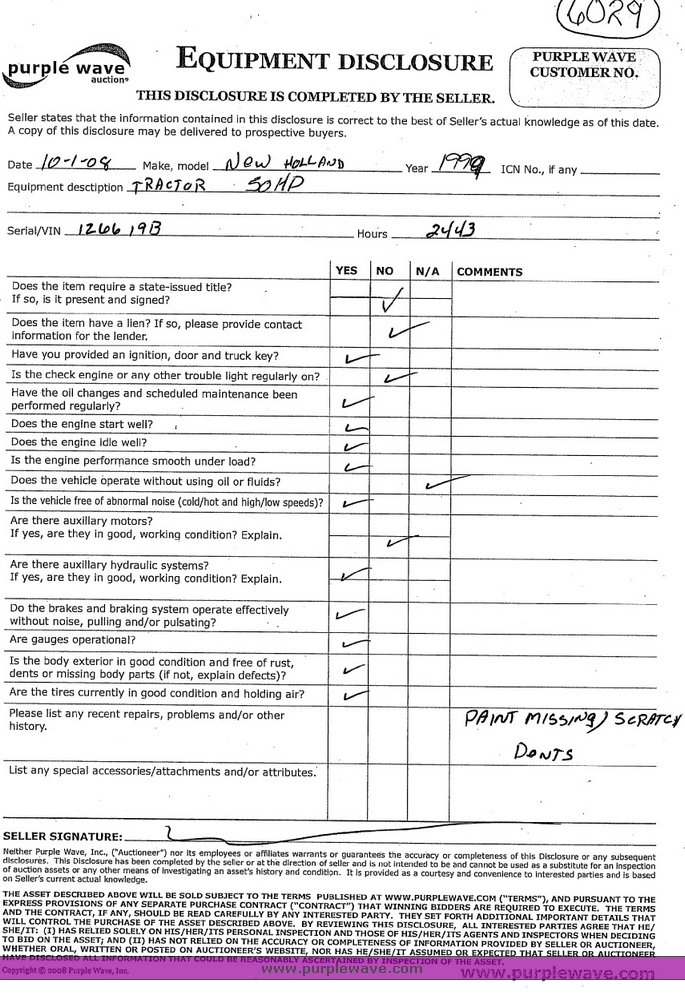 6029
purple wave
auction®
EQUIPMENT DISCLOSURE
PURPLE WAVE
CUSTOMER NO.
THIS DISCLOSURE IS COMPLETED BY THE SELLER.
Seller states that the information contained in this disclosure is correct to the best of Seller's actual knowledge as of this date.
A copy of this disclosure may be delivered to prospective buyers.
Date 10-1-08 Make, model NEW HOLLAND Year 1999 ICN No., if any
Equipment desctiption TRACTOR 50HP
Serial/VIN 126619B Hours 2443
YES NO N/A COMMENTS
Does the item require a state-issued title?
If so, is it present and signed?
Does the item have a lien? If so, please provide contact
information for the lender.
Have you provided an ignition, door and truck key?
Is the check engine or any other trouble light regularly on?
Have the oil changes and scheduled maintenance been
performed regularly?
Does the engine start well?
Does the engine idle well?
Is the engine performance smooth under load?
Does the vehicle operate without using oil or fluids?
Is the vehicle free of abnormal noise (cold/hot and high/low speeds)?
Are there auxillary motors?
If yes, are they in good, working condition? Explain.
Are there auxillary hydraulic systems?
If yes, are they in good, working condition? Explain.
Do the brakes and braking system operate effectively
without noise, pulling and/or pulsating?
Are gauges operational?
Is the body exterior in good condition and free of rust,
dents or missing body parts (if not, explain defects)?
Are the tires currently in good condition and holding air?
Please list any recent repairs, problems and/or other
history.
PAINT MISSING/SCRATCH
DENTS
List any special accessories/attachments and/or attributes.
SELLER SIGNATURE:
Neither Purple Wave, Inc., ("Auctioneer") nor its employees or affiliates warrants or guarantees the accuracy or completeness of this Disclosure or any subsequent
disclosures. This Disclosure has been completed by the seller or at the direction of seller and is not intended to be and cannot be used as a substitute for an inspection
of auction assets or any other means of investigating an asset's history and condition. It is provided as a courtesy and convenience to interested parties and is based
on Seller's current actual knowledge.
THE ASSET DESCRIBED ABOVE WILL BE SOLD SUBJECT TO THE TERMS PUBLISHED AT WWW.PURPLEWAVE.COM ("TERMS"), AND PURSUANT TO THE
EXPRESS PROVISIONS OF ANY SEPARATE PURCHASE CONTRACT ("CONTRACT") THAT WINNING BIDDERS ARE REQUIRED TO EXECUTE. THE TERMS
AND THE CONTRACT, IF ANY, SHOULD BE READ CAREFULLY BY ANY INTERESTED PARTY. THEY SET FORTH ADDITIONAL IMPORTANT DETAILS THAT
WILL CONTROL THE PURCHASE OF THE ASSET DESCRIBED ABOVE. BY REVIEWING THIS DISCLOSURE, ALL INTERESTED PARTIES AGREE THAT HE/
SHE/IT: (I) HAS RELIED SOLELY ON HIS/HER/ITS PERSONAL INSPECTION AND THOSE OF HIS/HER/ITS AGENTS AND INSPECTORS WHEN DECIDING
TO BID ON THE ASSET; AND (II) HAS NOT RELIED ON THE ACCURACY OR COMPLETENESS OF INFORMATION PROVIDED BY SELLER OR AUCTIONEER,
WHETHER ORAL, WRITTEN OR POSTED ON AUCTIONEER'S WEBSITE, NOR HAS HE/SHE/IT ASSUMED OR EXPECTED THAT SELLER OR AUCTIONEER
HAVE DISCLOSED ALL INFORMATION THAT COULD BE REASONABLY ASCERTAINED BY INSPECTION OF THE ASSET.
Copyright © 2008 Purple Wave, Inc.
www.purplewave.com
www.purplewave.com